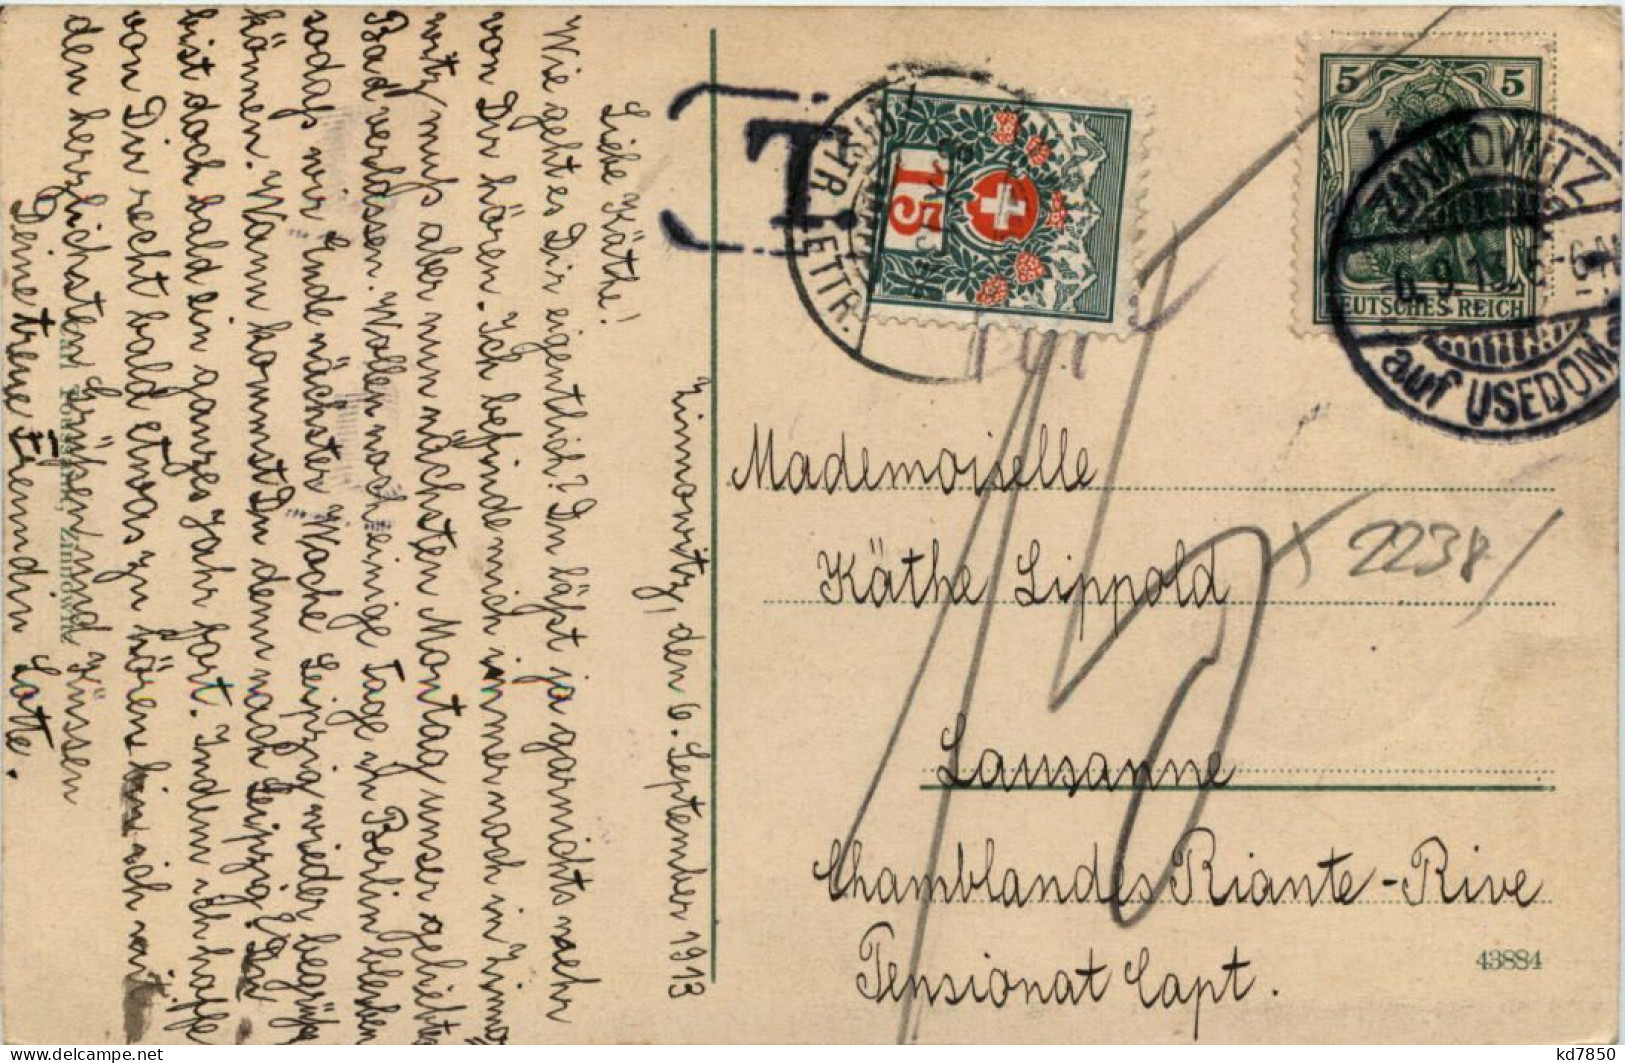 Zinnowitz, den 6. September 1913
Liebe Käthe!
Wie geht es Dir eigentlich? Du läßt ja garnichts mehr
von Dir hören. Ich befinde mich immer noch in Zinno-
witz, muß aber nun nächsten Montag unser geliebtes
Bad verlassen. Wollen noch einige Tage in Berlin bleiben
sodaß wir Ende nächster Woche Leipzig wieder begrüßen
können. Wann kommst Du denn nach Leipzig? Du
bist doch bald ein ganzes Jahr fort. Indem ich hoffe
von Dir recht bald etwas zu hören bin ich mit
den herzlichsten Grüßen und Küssen
Deine treue Freundin Lotte.
T.
15
TR. LETTR.
5 5
DEUTSCHES REICH
ZINNOWITZ
6.9.13. 5-6 N
auf USEDOM
15
2238
Mademoiselle
Käthe Lippold
Lausanne
Chamblandes Riante-Rive
Pensionat Capt.
43884
kd7850